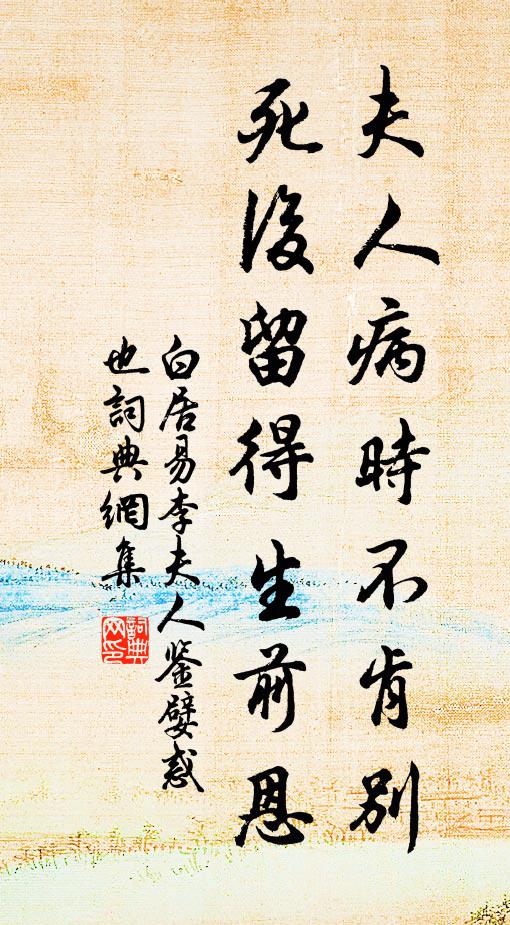 夫人病時不肯別
死後留得生前恩
白居易李夫人鉴嬖惑
也詞典網集
詞典
网印